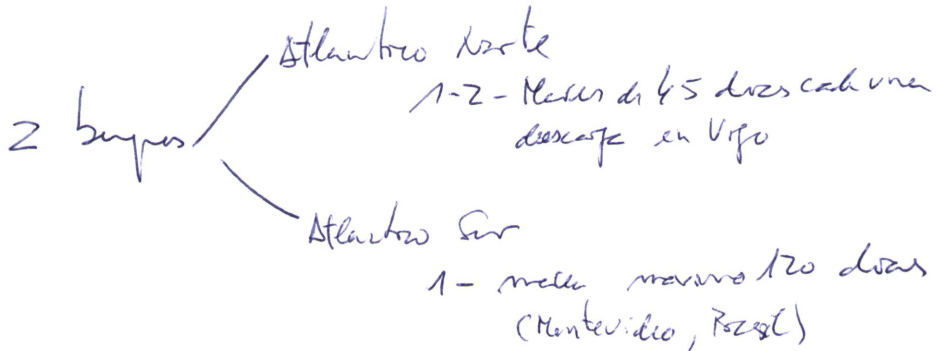 Atlantico Norte
1-2 - Mareas de 45 dias cada una
descarga en Vigo
2 buques
Atlantico Sur
1 - marea maximo 120 dias
(Montevideo, Brasil)